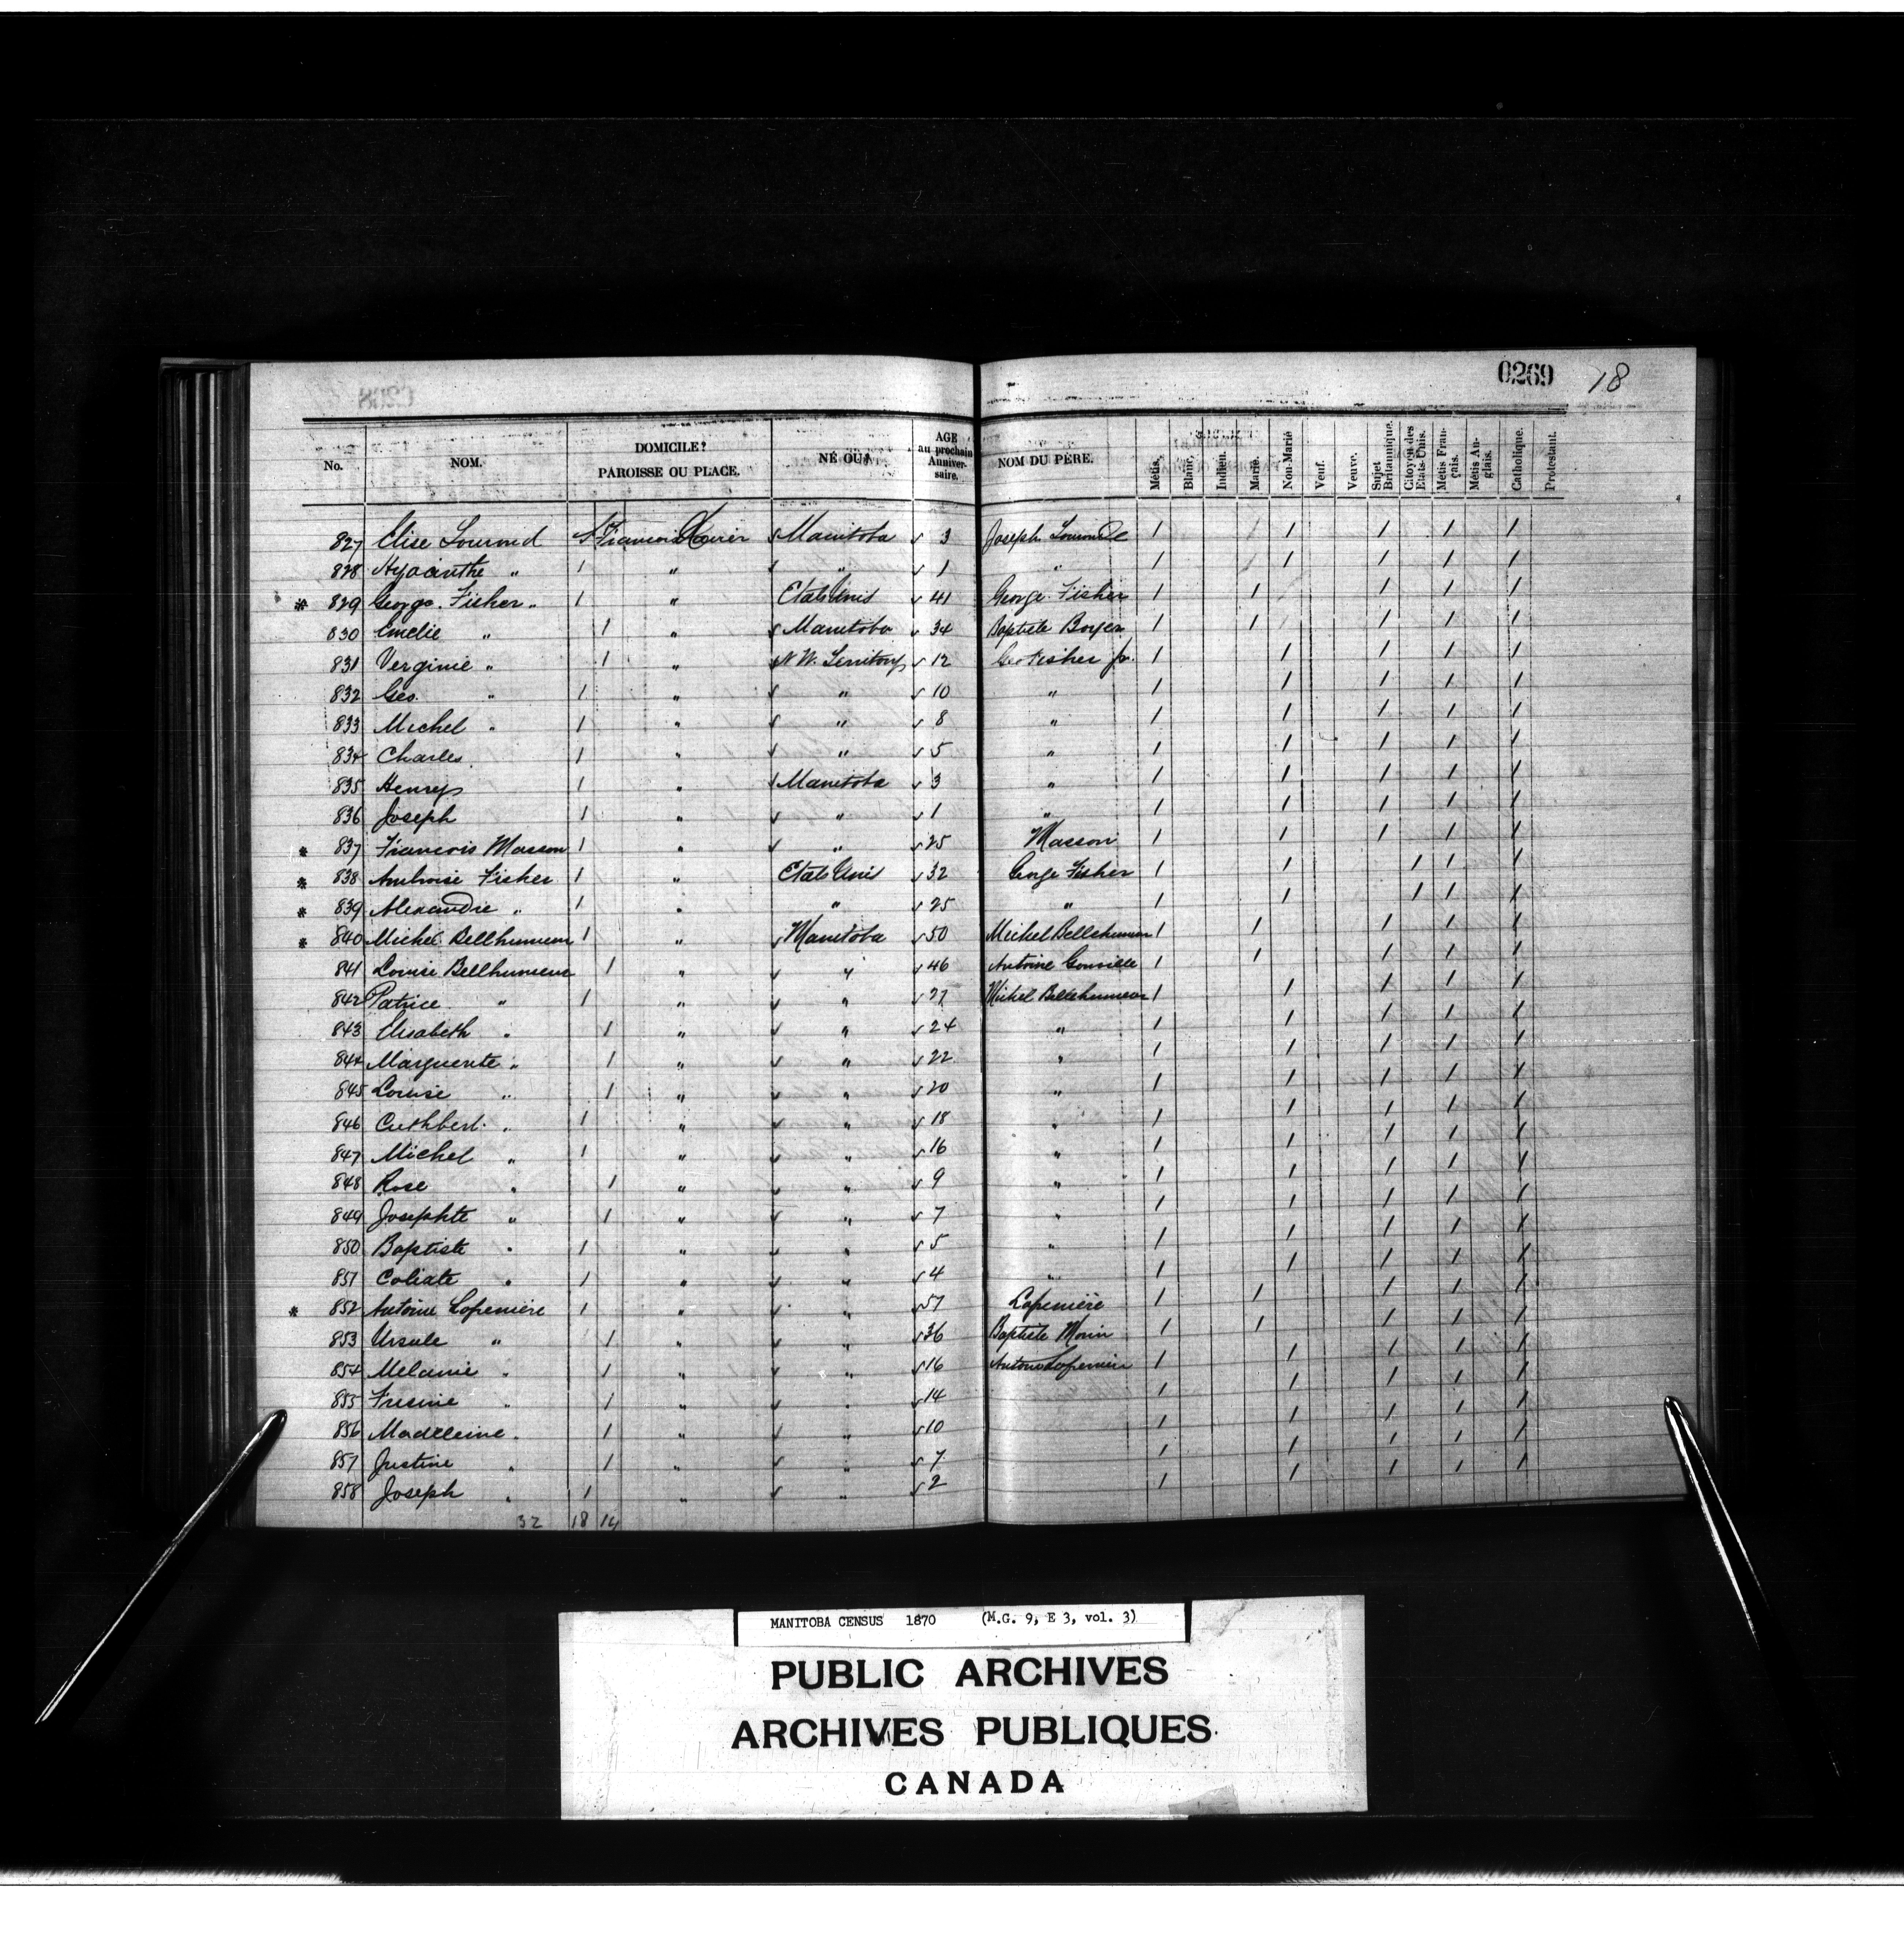 0269 18
No. NOM. DOMICILE? PAROISSE OU PLACE. NÉ OÙ? AGE au prochain Anniversaire. NOM DU PÈRE. Métis. Blanc. Indien. Marié. Non-Marié Veuf. Veuve. Sujet Britannique. Citoyen des Etats-Unis. Métis Français. Métis Anglais. Catholique. Protestant.
827 Elise St François Xavier Manitoba 3 Joseph 1 1 1 1 1
828 Hyacinthe " 1 " " 1 " 1 1 1 1 1
* 829 George Fisher 1 " Etats Unis 41 George Fisher 1 1 1 1 1
830 Emelie " 1 " Manitoba 34 Baptiste Boyer 1 1 1 1 1
831 Verginie " 1 " N W. Territory 12 Geo Fisher Jr. 1 1 1 1 1
832 Geo. " 1 " " 10 " 1 1 1 1 1
833 Michel " 1 " " 8 " 1 1 1 1 1
834 Charles 1 " " 5 " 1 1 1 1 1
835 Henry 1 " Manitoba 3 " 1 1 1 1 1
836 Joseph 1 " " 1 " 1 1 1 1 1
* 837 Francois Masson 1 " " 25 Masson 1 1 1 1 1
* 838 Ambroise Fisher 1 " Etats Unis 32 George Fisher 1 1 1 1 1
* 839 Alexandre " 1 " " 25 " 1 1 1 1 1
* 840 Michel Bellhumeur 1 " Manitoba 50 Michel Bellehumeur 1 1 1 1 1
841 Louise Bellhumeur 1 " " 46 Antoine 1 1 1 1 1
842 Patrice " 1 " " 27 Michel Bellehumeur 1 1 1 1 1
843 Elisabeth " 1 " " 24 " 1 1 1 1 1
844 Marguerite " 1 " " 22 " 1 1 1 1 1
845 Louise " 1 " " 20 " 1 1 1 1 1
846 Cuthbert " 1 " " 18 " 1 1 1 1 1
847 Michel " 1 " " 16 " 1 1 1 1 1
848 Rose " 1 " " 9 " 1 1 1 1 1
849 Josephte " 1 " " 7 " 1 1 1 1 1
850 Baptiste " 1 " " 5 " 1 1 1 1 1
851 " 1 " " 4 " 1 1 1 1 1
* 852 Antoine Lapenière 1 " " 57 Lapenière 1 1 1 1 1
853 Ursule " 1 " " 36 Baptiste Morin 1 1 1 1 1
854 Melanie " 1 " " 16 Antoine 1 1 1 1 1
855 " 1 " " 14 1 1 1 1 1
856 Madeleine " 1 " " 10 1 1 1 1 1
857 Justine " 1 " " 7 1 1 1 1 1
858 Joseph " 1 " " 2 1 1 1 1 1
32 18 14
MANITOBA CENSUS 1870 (M.G. 9, E 3, vol. 3)
PUBLIC ARCHIVES
ARCHIVES PUBLIQUES
CANADA